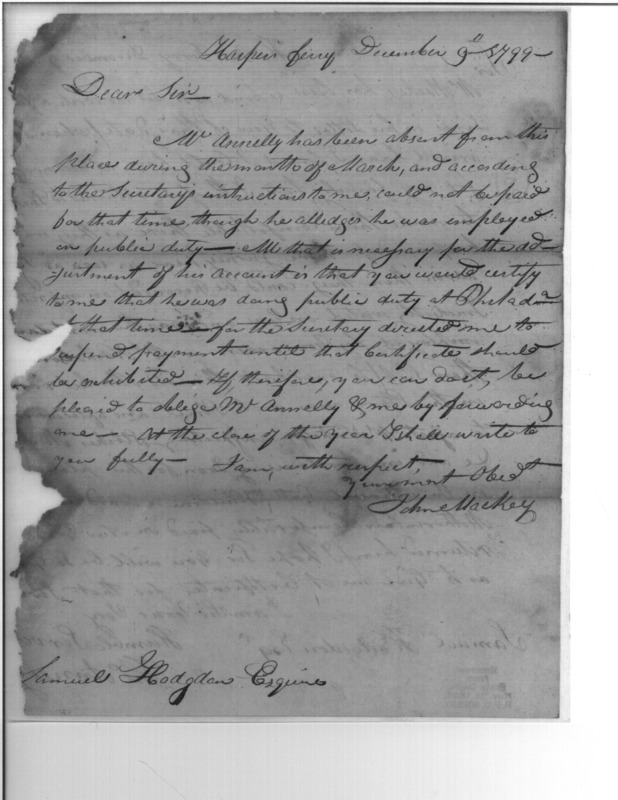 Harpers ferry December 9th 1799—
Dear Sir—
Mr Annelly has been absent from this
place during the month of March, and according
to the Secretarys instructions to me, could not be paid
for that time, though he alledges he was employed
on public duty— All that is necessary for the ad-
justment of his account is that you would certify
to me that he was doing public duty at Philada
that time— for the Secretary directed me to
suspend payment until that Certificate should
be exhibited— If therefore, you can do it, be
pleas'd to oblege Mr Annelly & me by forwarding
one— At the close of the Year I shall write to
you fully— I am, with respect,
Your most Obedt
John Mackey
Samuel Hodgdon Esquire